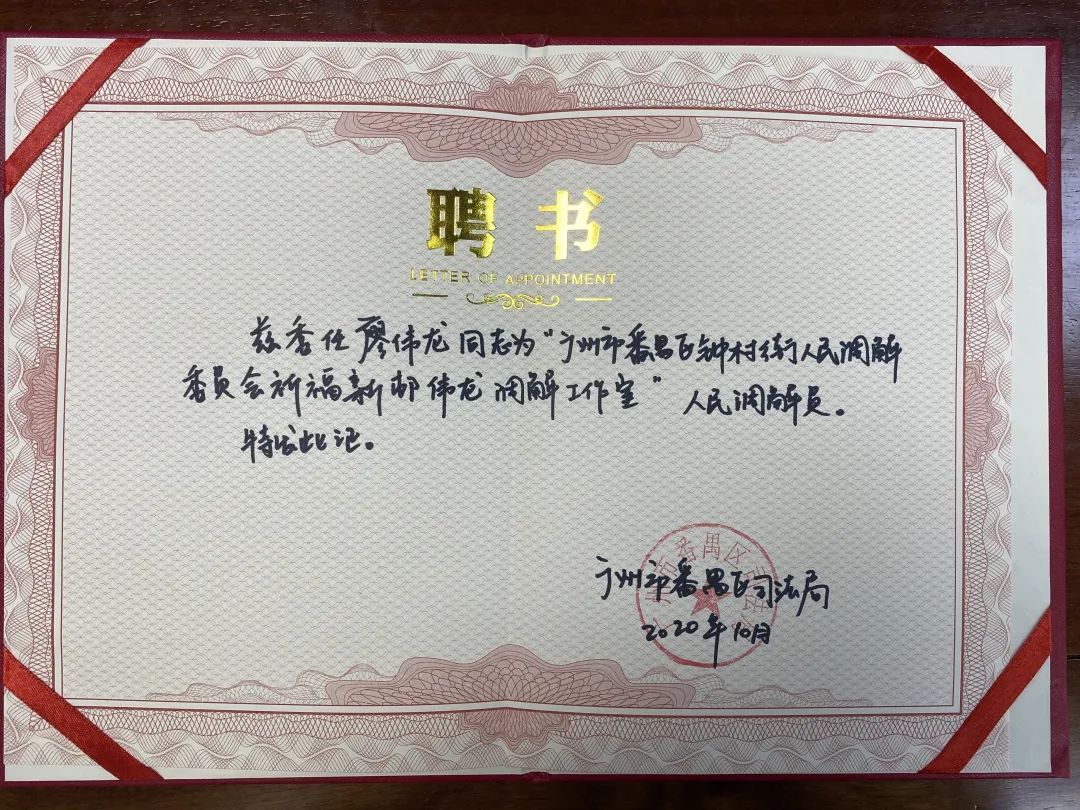 聘书
LETTER OF APPOINTMENT
兹委任廖伟龙同志为“广州市番禺区钟村街人民调解
委员会祈福新邨伟龙调解工作室”人民调解员。
特发此记。
广州市番禺区司法局
2020年10月